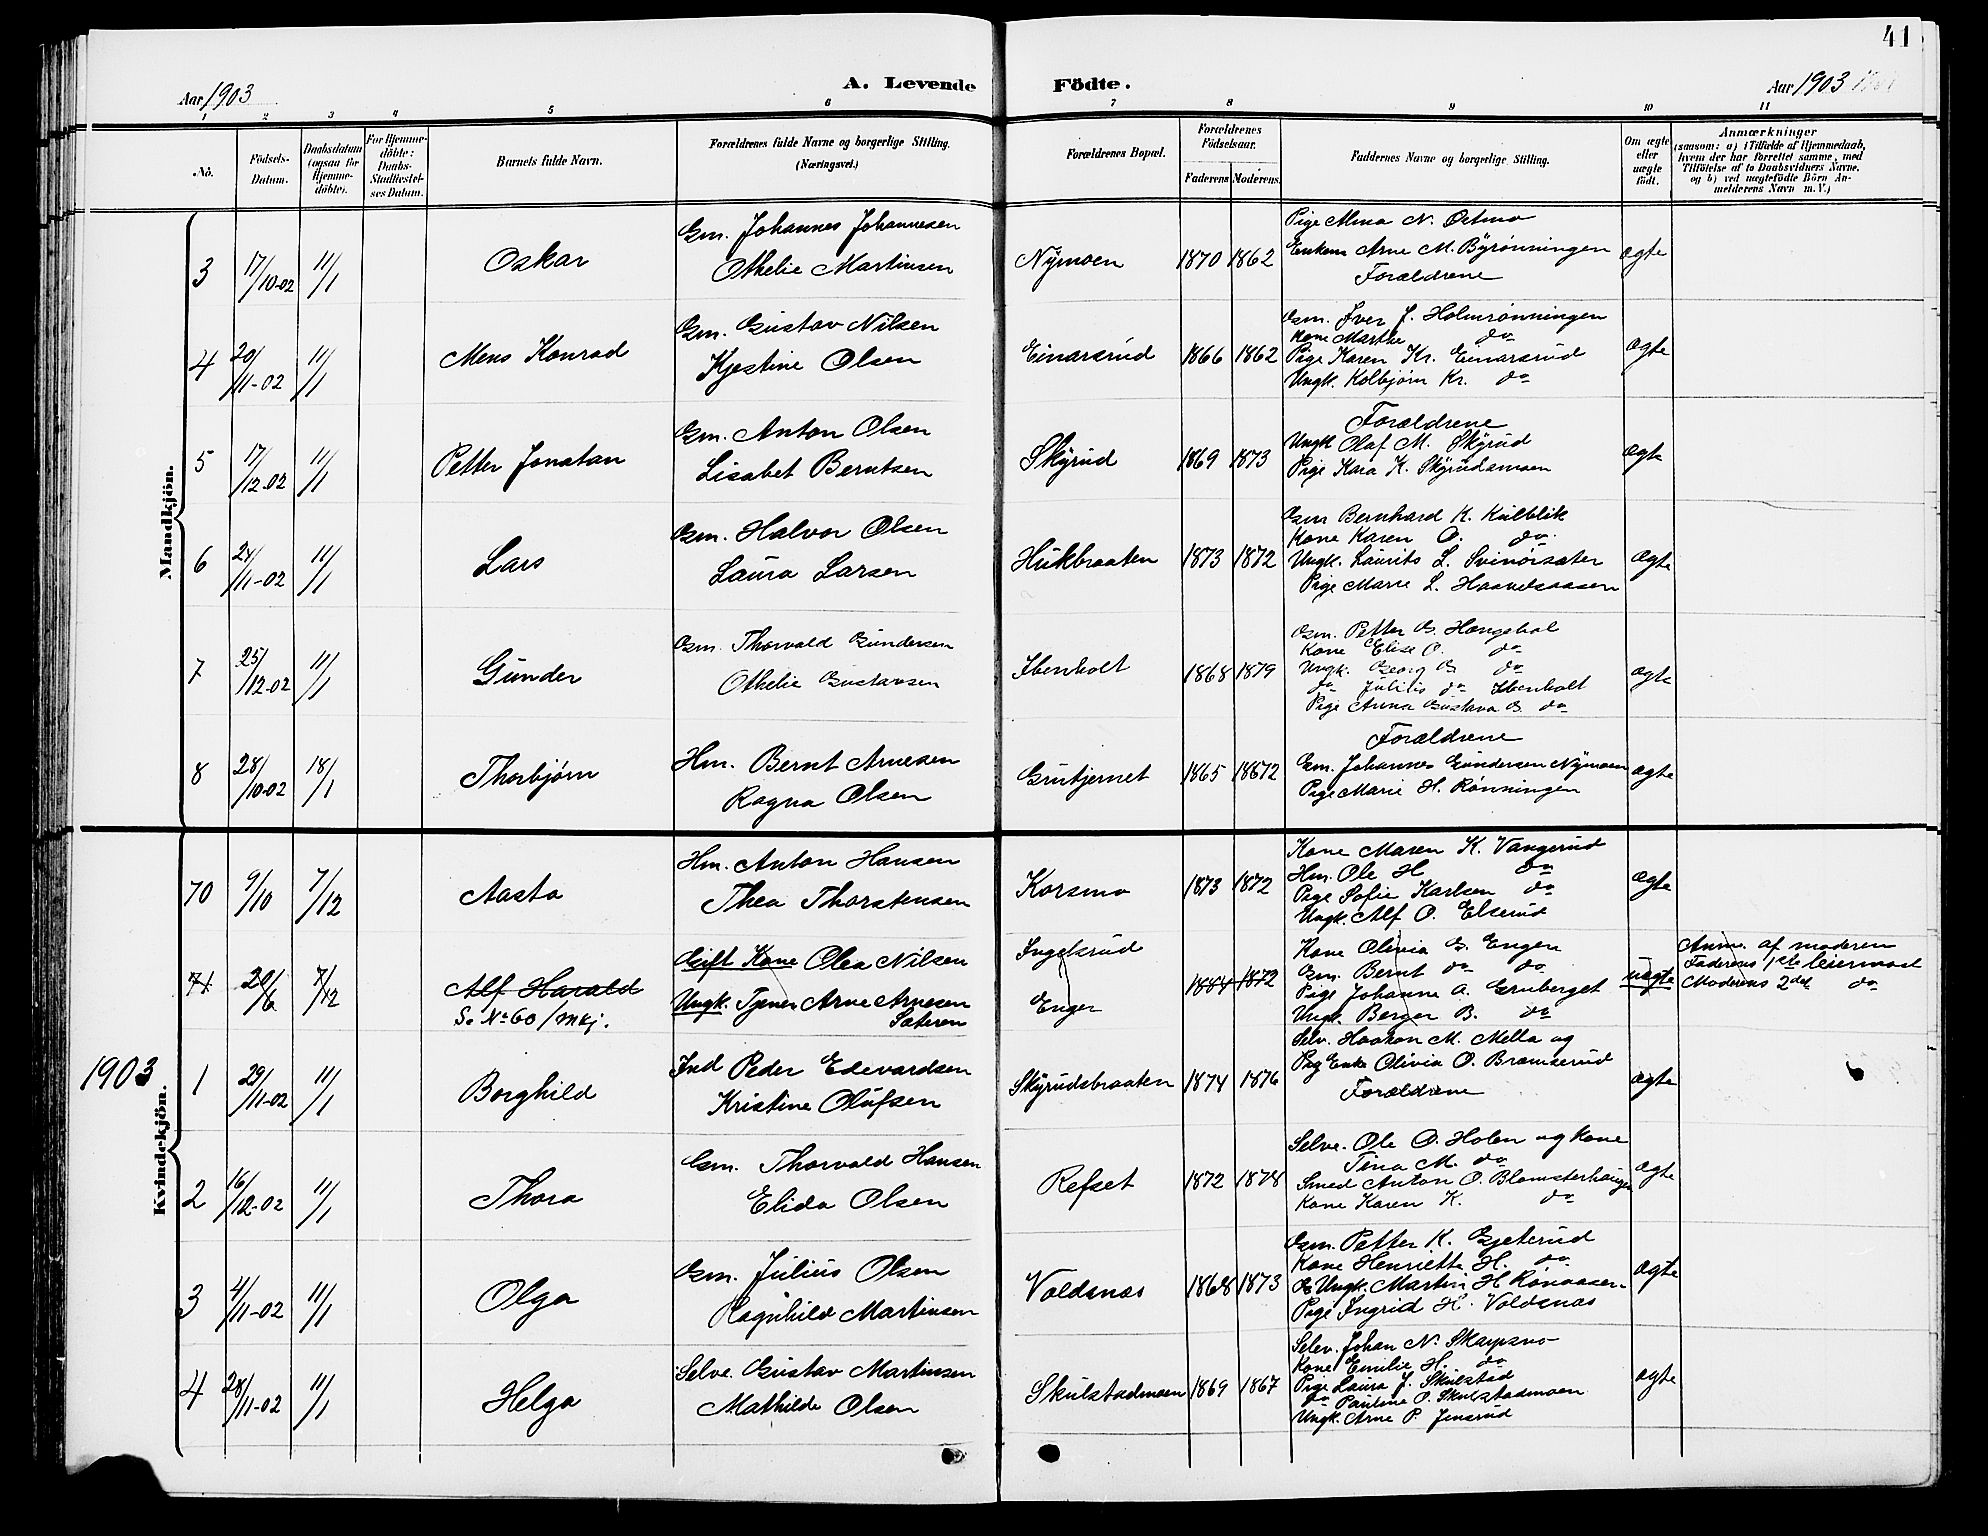 41
Aar 1903
A. Levende Födte.
Aar 1903
1 2 3 4 5 6 7 8 9 10 11
No.
Födsels-
Datum.
Daabsdatum
(ogsaa for
Hjemme-
döbte).
For Hjemme-
döbte:
Daabs-
Stadfæstel-
ses Datum.
Barnets fulde Navn.
Forældrenes fulde Navne og borgerlige Stilling.
(Næringsvei.)
Forældrenes Bopæl.
Forældrenes
Födselsaar.
Faderens Moderens
Faddernes Navne og borgerlige Stilling.
Om ægte
eller
uægte
födt.
Anmærkninger
(saasom: a) i Tilfælde af Hjemmedaab,
hvem der har forrettet samme, med
Tilföielse af to Daabsvidners Navne,
og b) ved uægtefödte Börn An-
melderens Navn m. V.)
Mandkjön.
3 17/10-02 11/1 Oskar
Gm. Johannes Johannesen
Othelie Martinsen
Nymoen 1870 1862
Pige Alma N. Østmo
Enkem Arne M. Byrønningen
Forældrene
ægte
4 20/11-02 11/1 Mens Konrad
Gm. Gustav Nilsen
Kjestine Olsen
Einarsrud 1866 1862
Gm. Iver J. Holmrønningen
Kone Marthe do
Pige Karen Kr. Einarsrud
Ungk. Kolbjørn Kr. do
ægte
5 17/12-02 11/1 Petter Jonatan
Gm. Anton Olsen
Lisabet Berntsen
Skyrud 1869 1873
Forældrene
Ungk Olaf M. Skyrud
Pige Kaia K. Skyrudsmoen
ægte
6 24/11-02 11/1 Lars
Gm. Halvor Olsen
Laura Larsen
Hukbraaten 1873 1872
Gm Bernhard K. Kulblik
Kone Karen O. do.
Ungk. Laurits L. Svinørsæter
Pige Marie L. Haavelsaasen
ægte
7 25/12-02 11/1 Gunder
Gm. Thorvald Gundersen
Othelie Gustavsen
Ibenholt 1868 1879
Gm. Petter G. Hengehol
Kone Elise O. do
Ungk. Georg G do
do Julius do Ibenholt
Pige Anna Gustava G. do
ægte
8 28/10-02 18/1 Thorbjørn
Hm. Bernt Arnesen
Ragna Olsen
Gruetjernet 1865 1872
Forældrene
Gm. Johannes Gundersen Nymoen
Pige Marie H. Rønningen
ægte
Kvindekjön.
70 9/10 7/12 Aasta
Hm. Anton Hansen
Thea Thorstensen
Korsmo 1873 1872
Kone Maren K. Vangerud
Hm. Ole H do
Pige Sofie Karlsen do
Ungk. Alf O. Elserud
ægte
71 20/6 7/12 Alf Harald
S. No 60/mkj.
Gift Kone Olea Nilsen
Ungk. Tjener Arne Arnesen
Sæteren
Ingelsrud
Enger
1884 1872
Kone Olivia G. Engen
Gm. Bernt do do
Pige Johanne A. Gruberget
Ungk. Berger B. do
uægte
Anm. af moderen
Faderens 1ste leiermaal
Moderens 2det do
1903
1 29/11-02 11/1 Borghild
Ind Peder Edevardsen
Kristine Olufsen
Skyrudsbraaten 1874 1876
Selv. Haakon M. Mella og
Pig Enke Olivia O. Bramserud
Forældrene
ægte
2 16/12-02 11/1 Thora
Gm. Thorvald Hansen
Elida Olsen
Refset 1872 1878
Selve. Ole O. Holen og Kone
Tina M. do
Smed Anton O. Blomsterhaugen
Kone Karen K. do
ægte
3 4/11-02 11/1 Olga
Gm. Julius Olsen
Ragnhild Martinsen
Voldsnæs 1868 1873
Gm. Petter K. Gjeterud
Kone Henriette H. do
Ungk. Martin H. Rønaasen
Pige Ingrid H. Voldsnæs
ægte
4 28/11-02 11/1 Helga
Selve. Gustav Martinsen
Mathilde Olsen
Skulstadmoen 1869 1867
Selev. Johan N. Skarpsno
Kone Emilie H. do
Pige Laura J. Skulstad
do Pauline O. Skulstadmoen
Ungk. Arne P. Jensrud
ægte